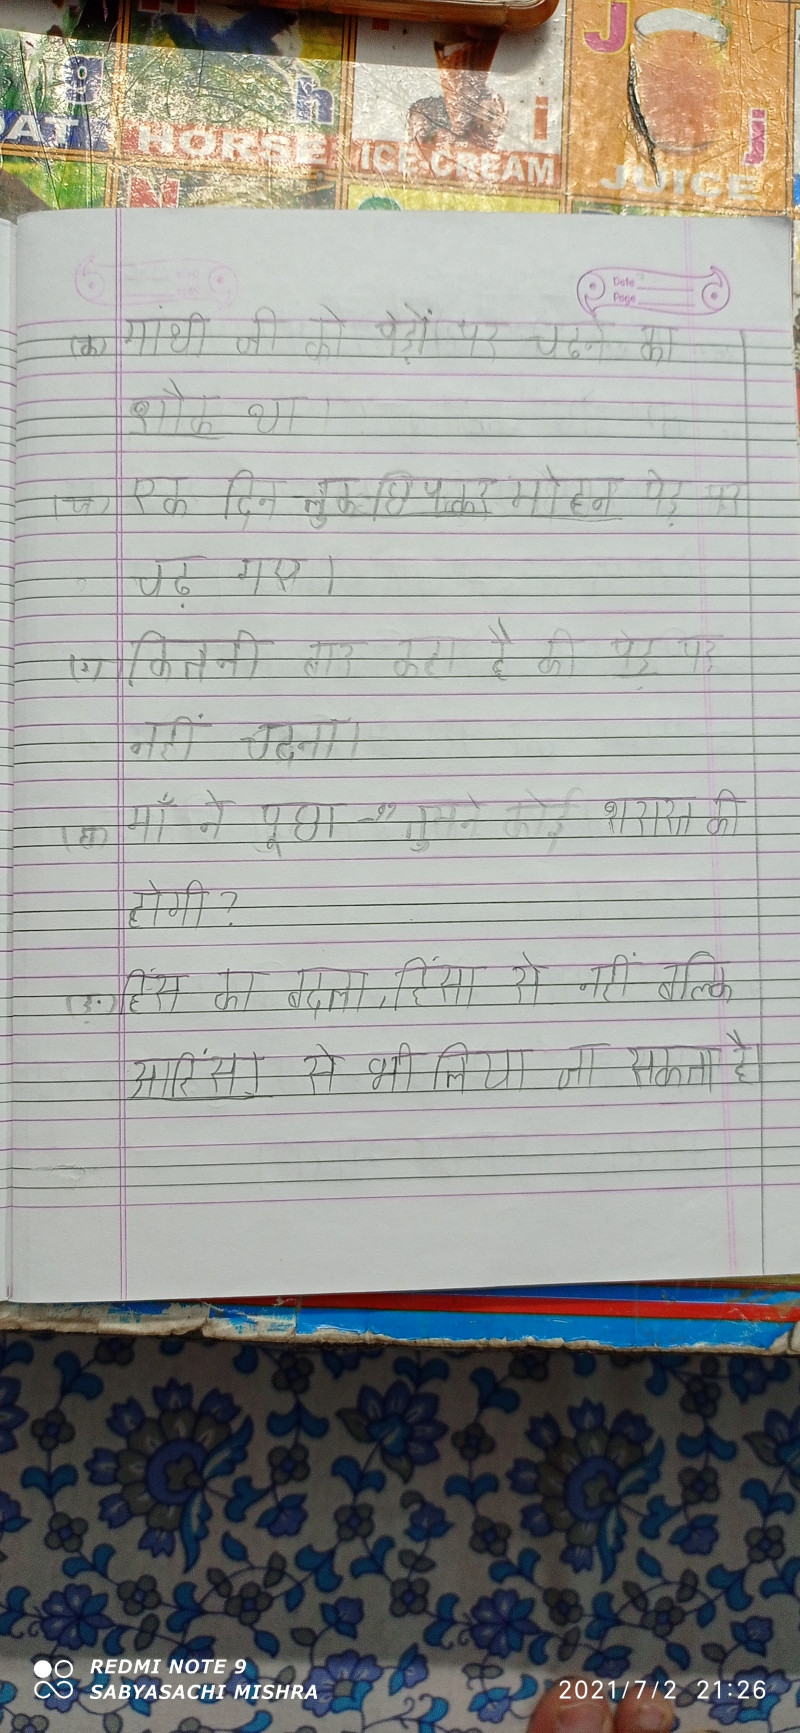 g
h
i
J
AT
HORSE
ICE-CREAM
JUICE
Date
Page
(क) गांधी जी को पेड़ों पर चढ़ने का
शौक था।
(ख) एक दिन लुक-छिपकर मोहन पेड़ पर
चढ़ गए।
(ग) कितनी बार कहा है की पेड़ पर
नहीं चढ़ना।
(घ) माँ ने पूछा -" तुमने कोई शरारत की
होगी?
(ङ) हिंस का बदला, हिंसा से नहीं बल्कि
अहिंसा से भी लिया जा सकता है।
REDMI NOTE 9
SABYASACHI MISHRA
2021/7/2 21:26